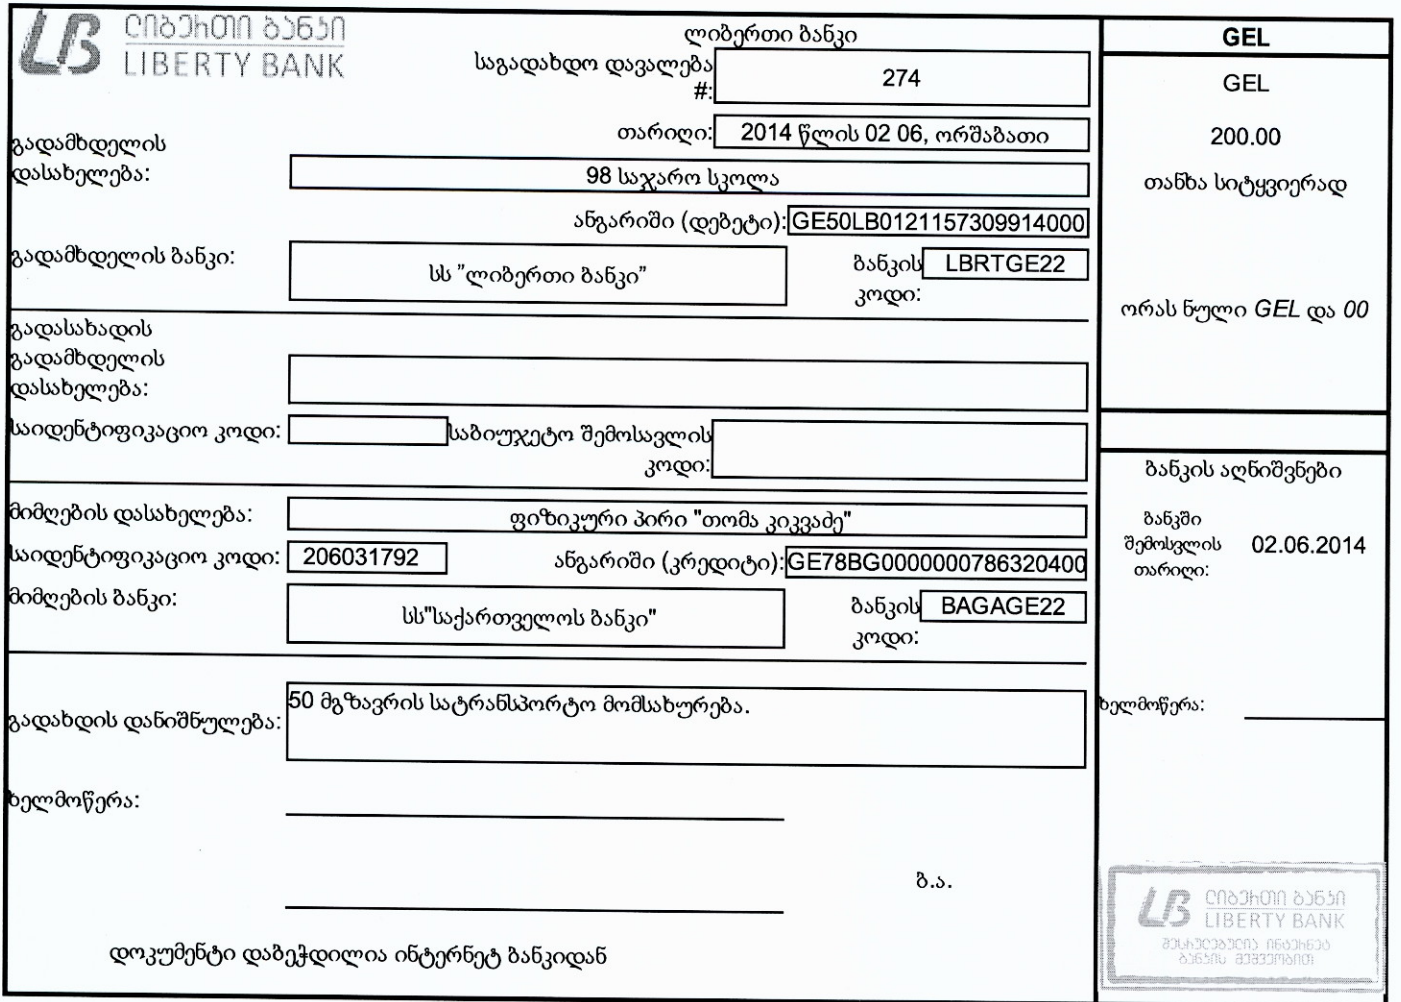 ლიბერთი ბანკი
LIBERTY BANK
ლიბერთი ბანკი
საგადახდო დავალება
#:
274
თარიღი: 2014 წლის 02 06, ორშაბათი
გადამხდელის
დასახელება: 98 საჯარო სკოლა
ანგარიში (დებეტი): GE50LB0121157309914000
გადამხდელის ბანკი: სს ”ლიბერთი ბანკი”
ბანკის
კოდი:
LBRTGE22
გადასახადის
გადამხდელის
დასახელება:
საიდენტიფიკაციო კოდი:
საბიუჯეტო შემოსავლის
კოდი:
მიმღების დასახელება: ფიზიკური პირი "თომა კიკვაძე"
საიდენტიფიკაციო კოდი: 206031792 ანგარიში (კრედიტი): GE78BG0000000786320400
მიმღების ბანკი: სს"საქართველოს ბანკი"
ბანკის
კოდი:
BAGAGE22
გადახდის დანიშნულება: 50 მგზავრის სატრანსპორტო მომსახურება.
ხელმოწერა:
ბ.ა.
დოკუმენტი დაბეჭდილია ინტერნეტ ბანკიდან
GEL
GEL
200.00
თანხა სიტყვიერად
ორას ნული GEL და 00
ბანკის აღნიშვნები
ბანკში
შემოსვლის
თარიღი:
02.06.2014
ხელმოწერა:
ლიბერთი ბანკი
LIBERTY BANK
შესრულებულია ინტერნეტ
ბანკის მეშვეობით